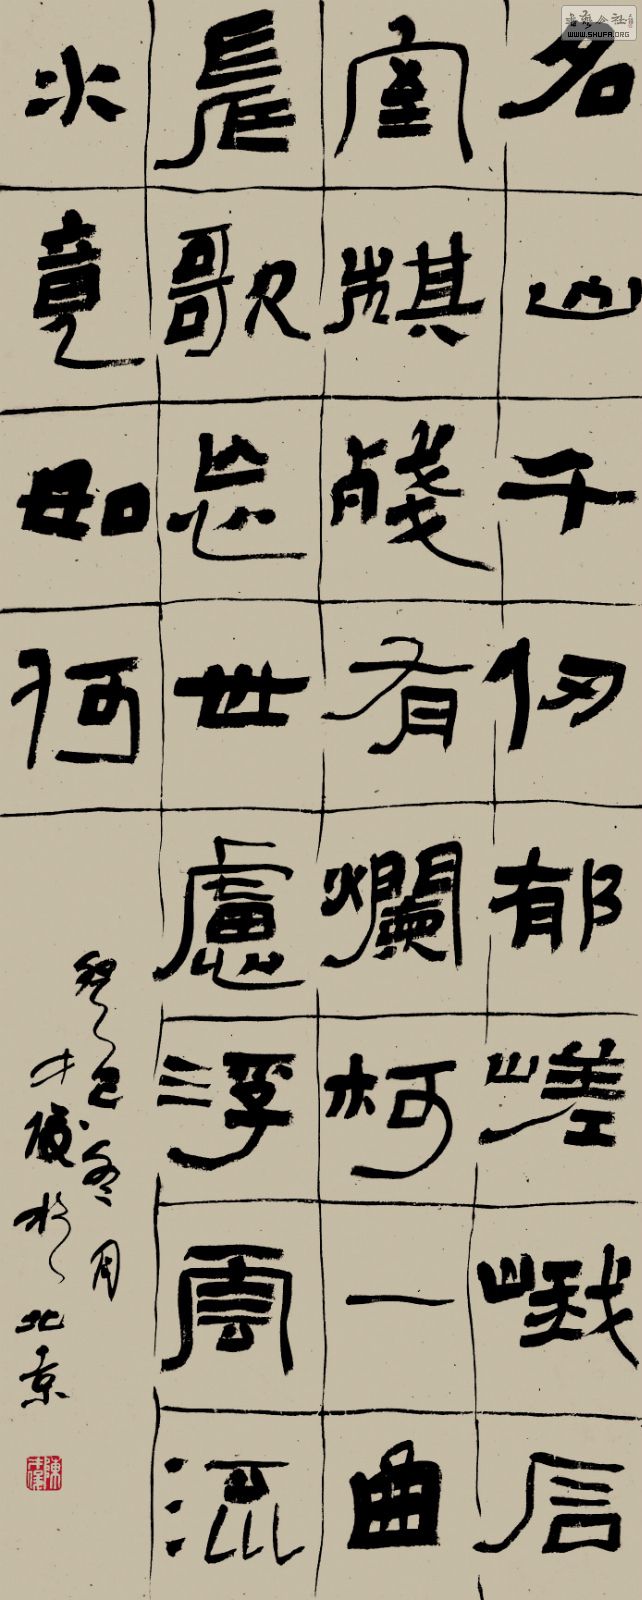 名山千仞郁嵯峨石
室棋殘有爛柯一曲
長歌忘世慮浮雲流
水竟如何
癸巳冬月
才俊於北京
陳才俊
書藝公社
WWW.SHUFA.ORG